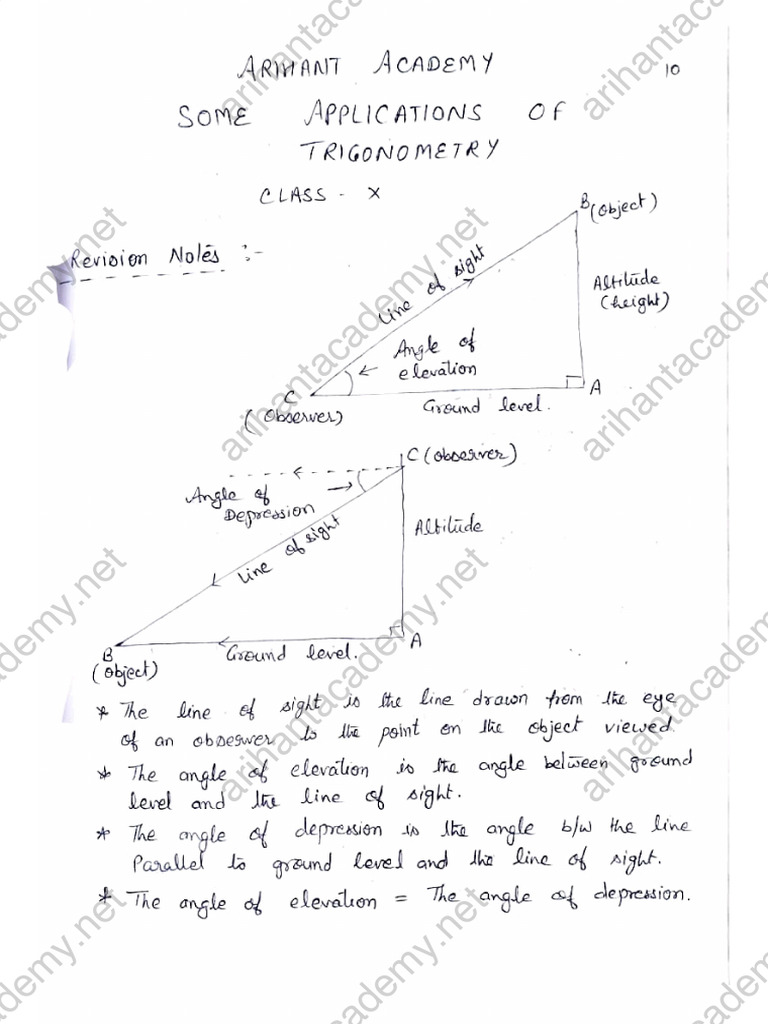 ARIHANT ACADEMY
10
SOME APPLICATIONS OF
TRIGONOMETRY
CLASS - X
Revision Notes :-
B (Object)
Line of sight
Altitude
(height)
Angle of
elevation
C
(Observer)
A
Ground level.
C (observer)
Angle of
Depression
Line of sight
Altitude
B
(Object)
Ground level.
A
* The line of sight is the line drawn from the eye
of an observer to the point on the object viewed.
* The angle of elevation is the angle between ground
level and the line of sight.
* The angle of depression is the angle b/w the line
Parallel to ground level and the line of sight.
* The angle of elevation = The angle of depression.
arihantacademy.net